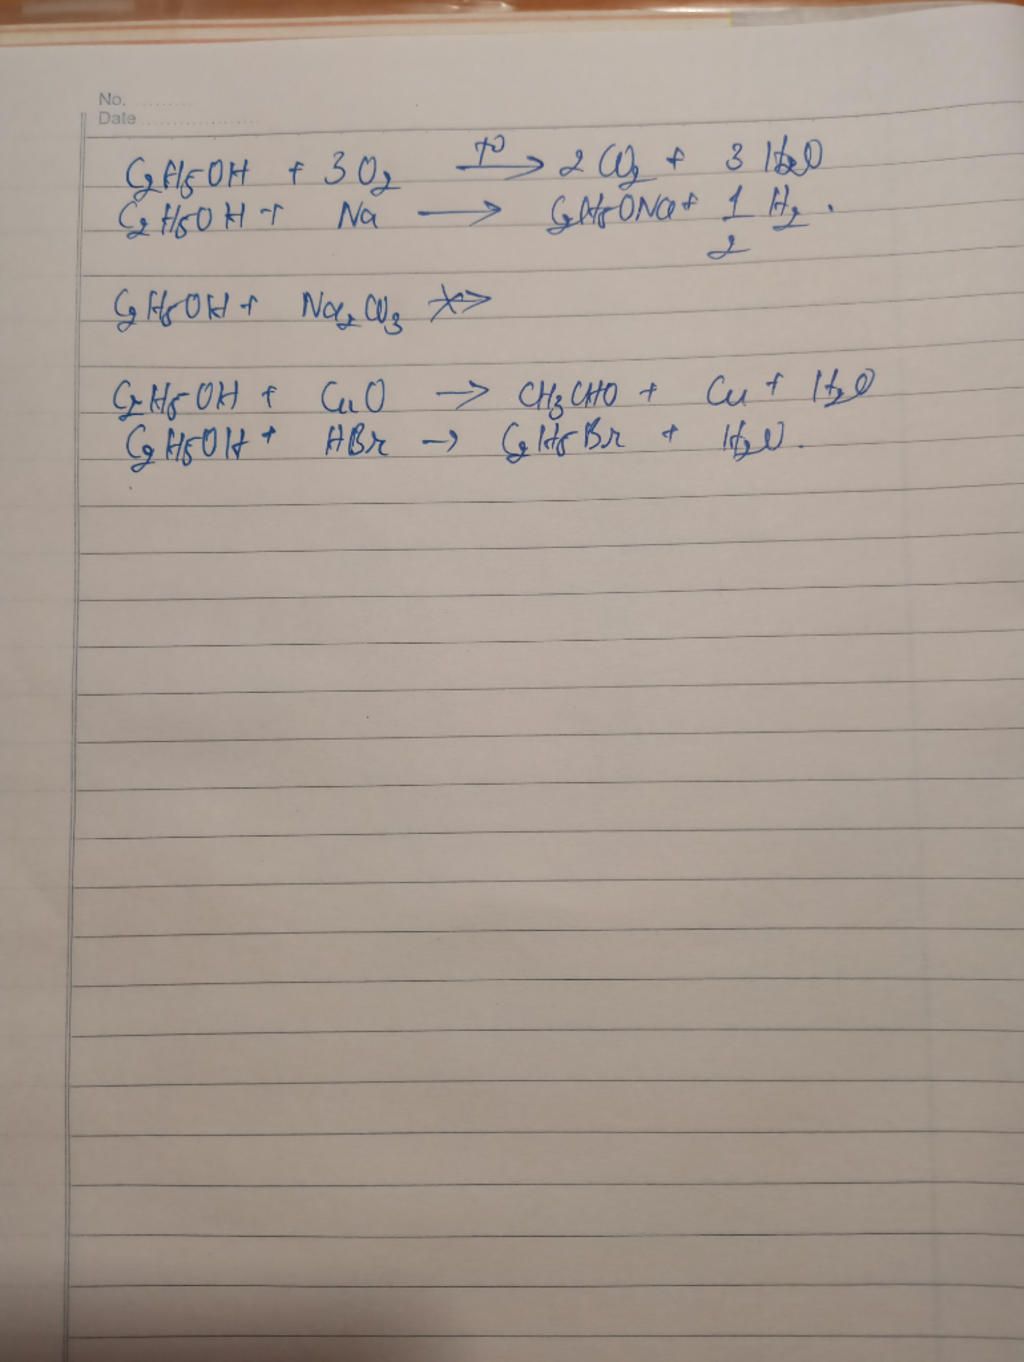 No. ..........
Date ....................
C₂H₅OH + 3O₂ –t⁰→ 2CO₂ + 3H₂O
C₂H₅OH + Na → C₂H₅ONa + 1/2 H₂.
C₂H₅OH + Na₂CO₃ ↛
C₂H₅OH + CuO → CH₃CHO + Cu + H₂O
C₂H₅OH + HBr → C₂H₅Br + H₂O.